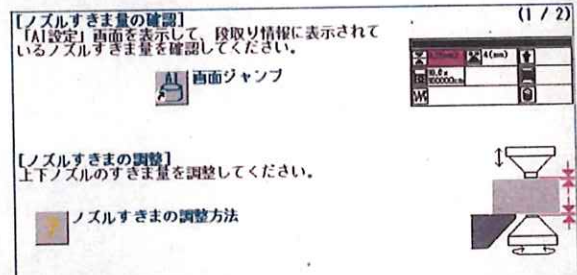 (1 / 2)
【ノズルすきま量の確認】
「AI設定」画面を表示して、段取り情報に表示されて
いるノズルすきま量を確認してください。
AI
画面ジャンプ
4(mm)
【ノズルすきまの調整】
上下ノズルのすきま量を調整してください。
?
ノズルすきまの調整方法